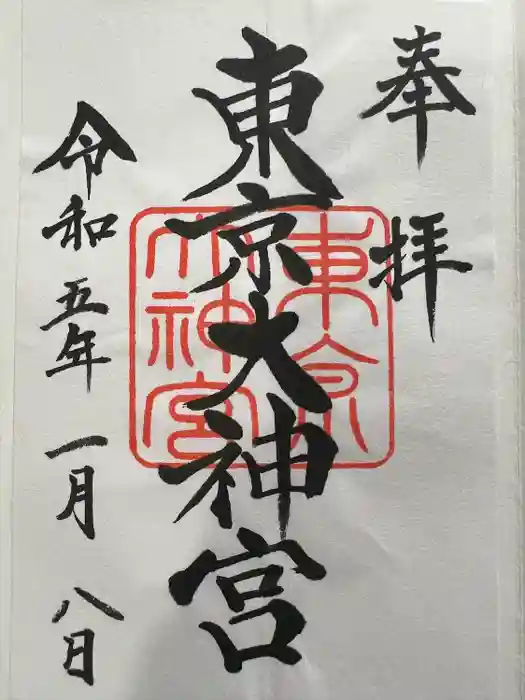 奉拝
東京大神宮
東京
大神宮
令和五年一月八日